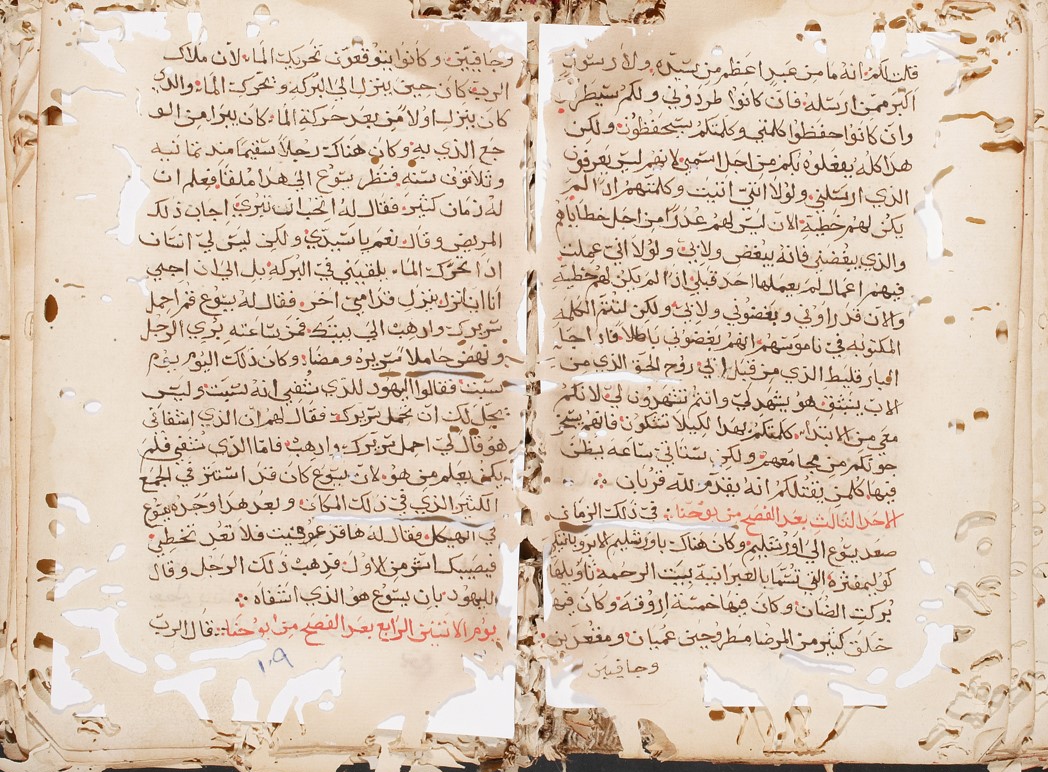 قلت لكم انه ما من عبد اعظم من سيده ولا رسول
اكبر ممن ارسله فان كانوا طردوني ولكم سيطردون
وان كانوا حفظوا كلمتي وكلمتكم سيحفظون ولكن
هدا كله يفعلوه بكم من اجل اسمي لانهم ليس يعرفون
الذي ارسلني ولولا انني اتيت وكلمتهم ادا لم
يكن لهم خطية الان ليس لهم عدرا من اجل خطاياهم
والذي يبغضني فانه يبغض ولابي ولولا اني عملت
فيهم اعمال لم يعملها احد قبلي ادا لم يكن لهم خطية
والان قد راوني وبغضوني ولابي ولكن لتتم الكلمه
المكتوبه في ناموسهم انهم بغضوني باطلا فادا جا
البارقليط الذي من قبل ابي روح الحق الذي من
الاب ينبثق هو يشهد لي وانتم تشهدون لي لانكم
معي من الابتداء كلمتكم بهدا لكيلا تشكون فانهم سيخر
جوكم من مجامعهم ولكن ستاتي ساعه يظن
فيها كلمن يقتلكم انه يقدم لله قربان
الاحد الثالث بعد الفصح من يوحنا في ذلك الزمان
صعد يسوع الى اورشليم وكان هناك باورشليم الابروباتيكي
كولمفتره التي تسما بالعبرانية بيت الرحمه تاويلها
بركت الضان وكان فيها خمسة اروقة وكان فيها
خلق كثير من المرضا مطروحين عميان ومقعدين
وجافيين
وجافيين وكانوا يتوقعون تحريك الما لان ملاك
الرب كان حين ينزل الى البركه وتحرك الما والذي
كان ينزل اولا من بعد حركة الما كان يبرا من الو
جع الذي به وكان هناك رجلا سقيما مند تمانيه
وتلاتون سنه فنظر يسوع الى هدا ملقا فعلم ان
له زمان كتير فقال له اتحب ان تبرى اجاب ذلك
المريض وقال نعم يا سيدي ولكن ليس لي انسان
ادا تحركت الما يلقيني في البركه بل الى ان اجي
انا انزل ينزل قدامي اخر فقال له يسوع قم احمل
سريرك وادهب الى بيتك فمن ساعته بري الرجل
ونهض حاملا سريره ومضا وكان ذلك اليوم يوم
سبت فقالوا اليهود للذي شفي انه سبت وليس
يحل لك ان تحمل سريرك فقال لهم ان الذي اشفاني
هو قال لي احمل سريرك وادهب فاما الذي شفي فلم
يكن يعلم من هو لان يسوع كان قد استتر في الجمع
الكثير الذي في ذلك المكان وبعد هدا وجده يسوع
في الهيكل فقال له ها قد عوفيت فلا تعد تخطي
فيصيبك اشر من الاول فدهب ذلك الرجل وقال
لليهود بان يسوع هو الذي اشفاه
يوم الاتنين الرابع بعد الفصح من يوحنا قال الرب
١٠٩